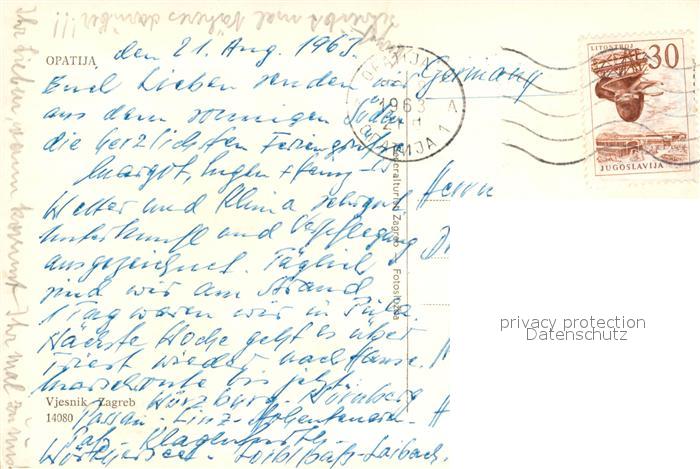 schreibt mal Näheres darüber!!!
OPATIJA, den 21. Aug. 1963.
Euch Lieben senden wir
aus dem sonnigen Süden
die herzlichsten Feriengrüße
Margot, Eugen + Hans
Wetter und Klima sehr gut
Unterkunft und Verpflegung
ausgezeichnet. Täglich
sind wir am Strand
1 Tag waren wir in Pula.
Nächste Woche geht es über
Triest wieder nach Hause.
Marschroute bis jetzt:
Würzburg - Nürnberg
Passau - Linz - Hohentauern-
Paß - Klagenfurt -
Wörthersee - Loiblpaß - Laibach.
Vjesnik Zagreb
14080
Ihr Lieben, wann kommt Ihr mal zu uns
Germany
Herrn
OPATIJA
1963
OPATIJA 1
A
LITOSTROJ
30
JUGOSLAVIJA
Zagreb — Fotoslužba
privacy protection
Datenschutz